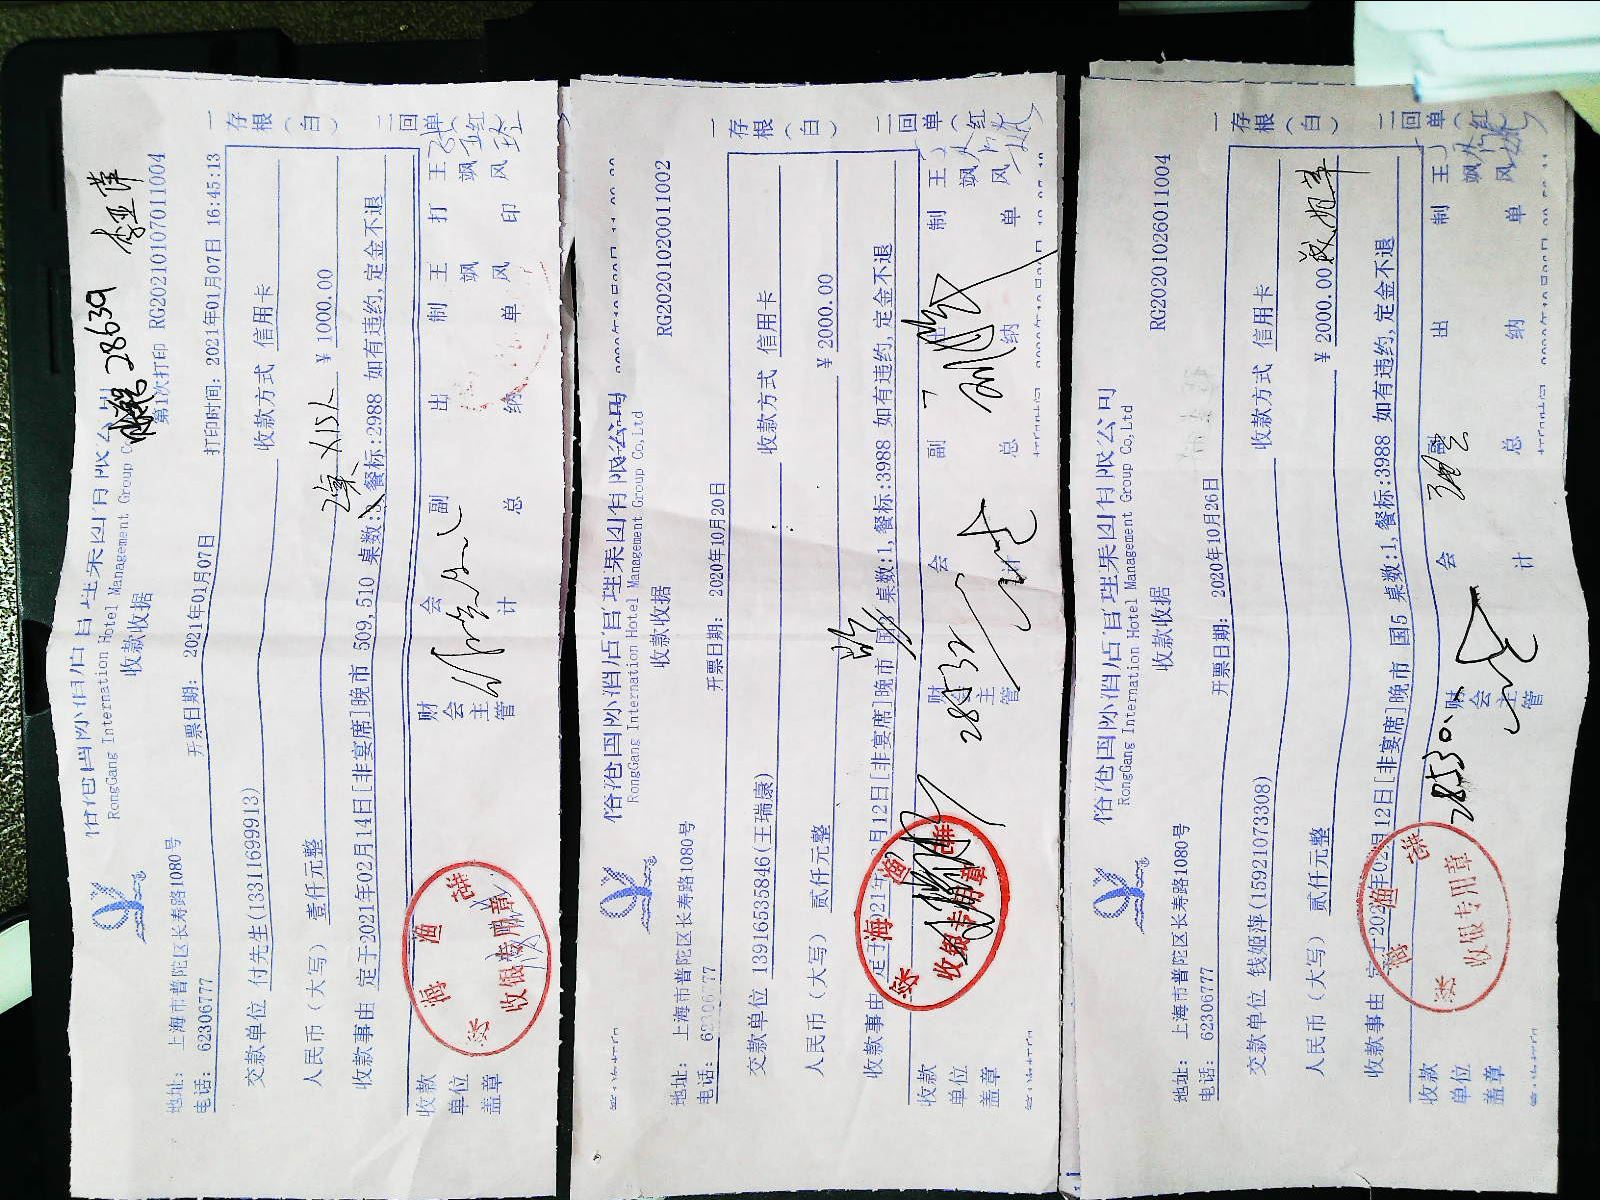 28639
第1次打印 RG20210107011004
RongGang International Hotel Management Group Co,Ltd
收款收据
地址: 上海市普陀区长寿路1080号
电话: 62306777
开票日期: 2021年01月07日
打印时间: 2021年01月07日 16:45:13
交款单位 付先生(13311699913)
收款方式 信用卡
人民币(大写) 壹仟元整
¥ 1000.00
收款事由 定于2021年02月14日[非宴席]晚市 509,510 桌数: 餐标:2988 如有违约,定金不退
收款单位盖章
财会主管
会计
副总
出纳
制单
王飒风
打印
王飒风
一存根(白)
二回单(红)
收银专用章
RG20201020011002
RongGang International Hotel Management Group Co,Ltd
收款收据
地址: 上海市普陀区长寿路1080号
电话: 62306777
开票日期: 2020年10月20日
交款单位 13916535846(王瑞康)
收款方式 信用卡
人民币(大写) 贰仟元整
¥ 2000.00
收款事由 定于2021年02月12日[非宴席]晚市 国3 桌数:1,餐标:3988 如有违约,定金不退
28532
收款单位盖章
财会主管
会计
副总
出纳
制单
王飒风
一存根(白)
二回单(红)
收银专用章
RG20201026011004
RongGang International Hotel Management Group Co,Ltd
收款收据
地址: 上海市普陀区长寿路1080号
电话: 62306777
开票日期: 2020年10月26日
交款单位 钱姬萍(15921073308)
收款方式 信用卡
人民币(大写) 贰仟元整
¥ 2000.00
收款事由 定于2021年02月12日[非宴席]晚市 国5 桌数:1,餐标:3988 如有违约,定金不退
28530
收款单位盖章
财会主管
会计
副总
出纳
制单
王飒风
一存根(白)
二回单(红)
收银专用章